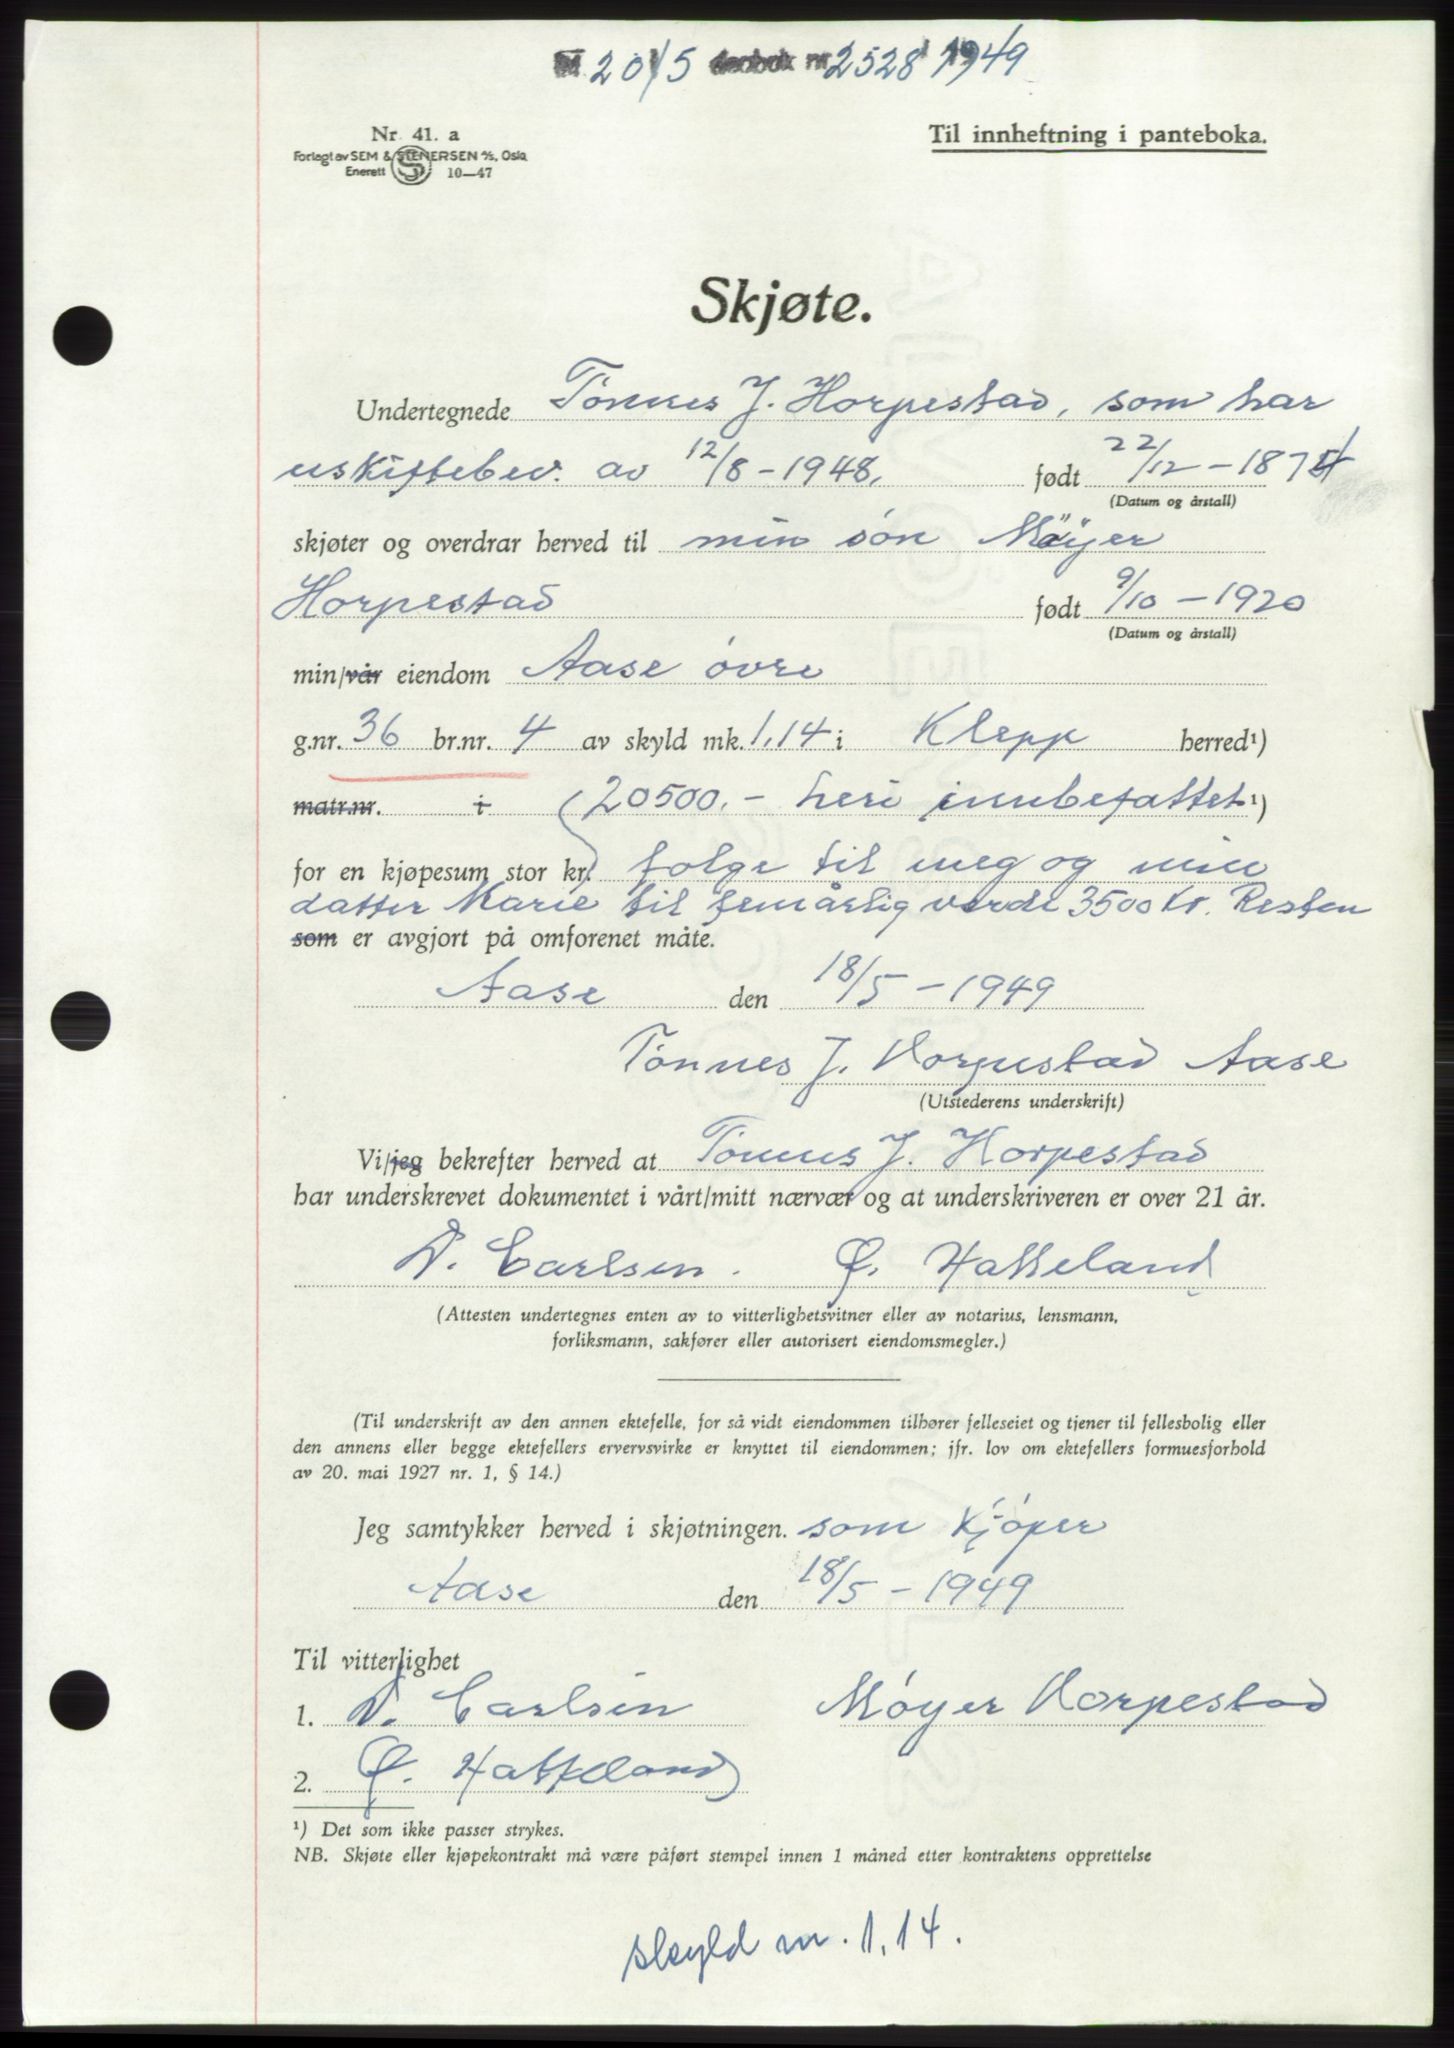 20/5 dagbok nr 2528 1949
Nr. 41. a
Til innheftning i panteboka.
Forlagt av SEM & STENERSEN A/S, Oslo
Enerett 10—47
Skjøte.
Undertegnede Tönnes J. Horpestad, som har
uskiftebev. av 12/8 - 1948. født 22/12 - 1874
(Datum og årstall)
skjøter og overdrar herved til min sön Möyer
Horpestad født 9/10 - 1920
(Datum og årstall)
min/vår eiendom Aase övre
g.nr. 36 br.nr. 4 av skyld mk. 1,14 i Klepp herred¹)
matr.nr. i 20500.- heri innbefattet ¹)
for en kjøpesum stor kr. folge til meg og min
datter Marie til femårlig verdi 3500 Kr. Resten
som er avgjort på omforenet måte.
Aase den 18/5 - 1949
Tönnes J. Horpestad Aase
(Utstederens underskrift)
Vi/jeg bekrefter herved at Tönnes J. Horpestad
har underskrevet dokumentet i vårt/mitt nærvær og at underskriveren er over 21 år.
D. Carlsen. Ø. Hatteland
(Attesten undertegnes enten av to vitterlighetsvitner eller av notarius, lensmann,
forliksmann, sakfører eller autorisert eiendomsmegler.)
(Til underskrift av den annen ektefelle, for så vidt eiendommen tilhører felleseiet og tjener til fellesbolig eller
den annens eller begge ektefellers ervervsvirke er knyttet til eiendommen; jfr. lov om ektefellers formuesforhold
av 20. mai 1927 nr. 1, § 14.)
Jeg samtykker herved i skjøtningen. som kjöper
Aase den 18/5 - 1949
Til vitterlighet
1. D. Carlsen Möyer Horpestad
2. Ø. Hatteland
¹) Det som ikke passer strykes.
NB. Skjøte eller kjøpekontrakt må være påført stempel innen 1 måned etter kontraktens opprettelse
skyld m. 1,14.